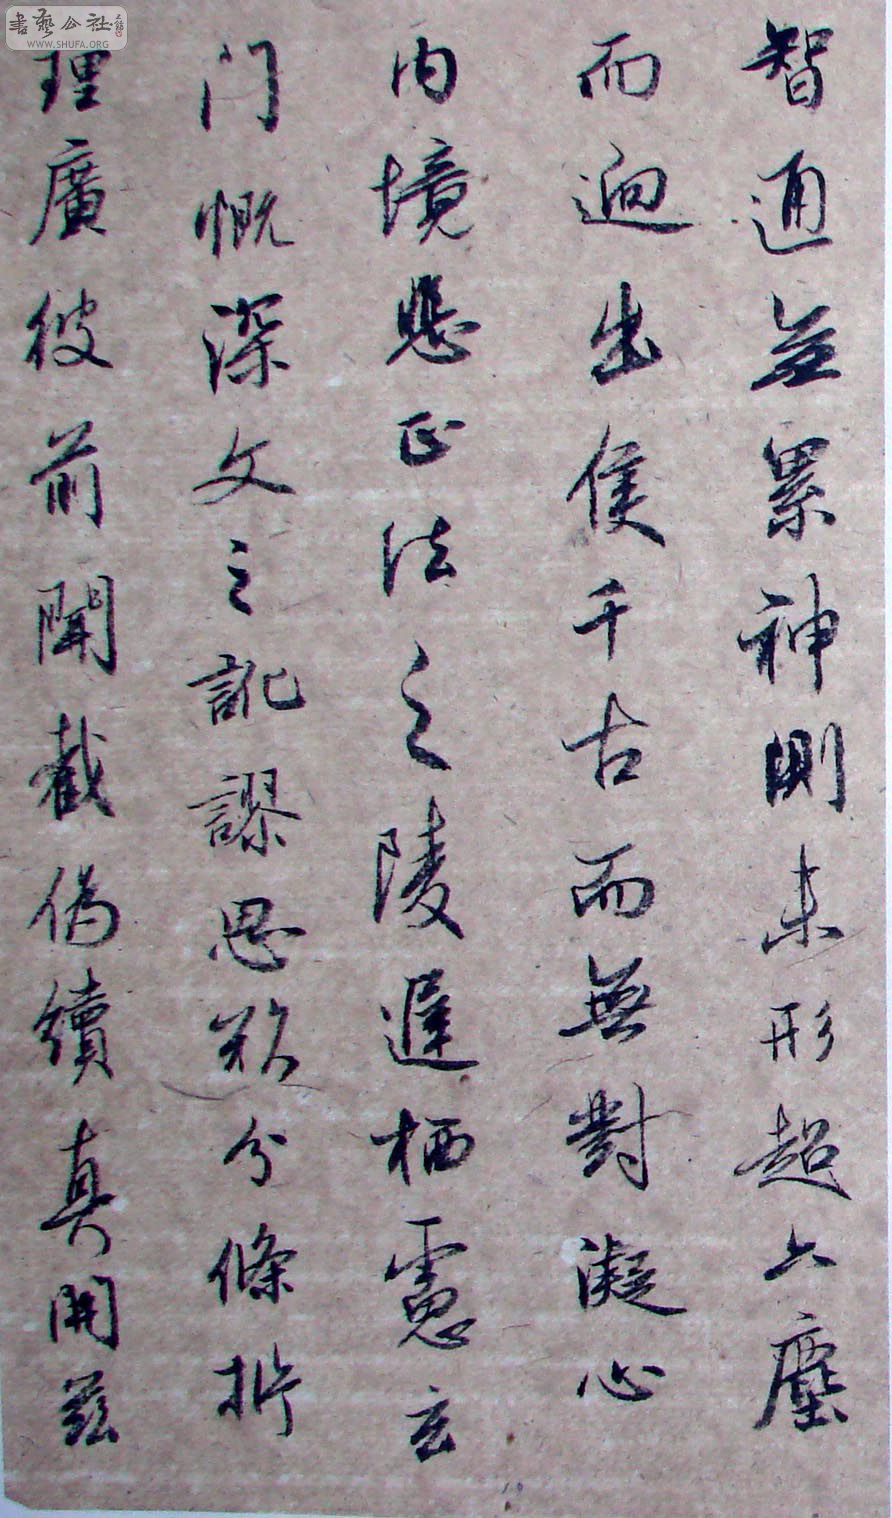 書藝公社
WWW.SHUFA.ORG
智通無累神測未形超六塵
而迥出隻千古而無對凝心
内境悲正法之陵遲栖慮玄
门慨深文之訛謬思欲分條析
理廣彼前聞截偽續真開兹